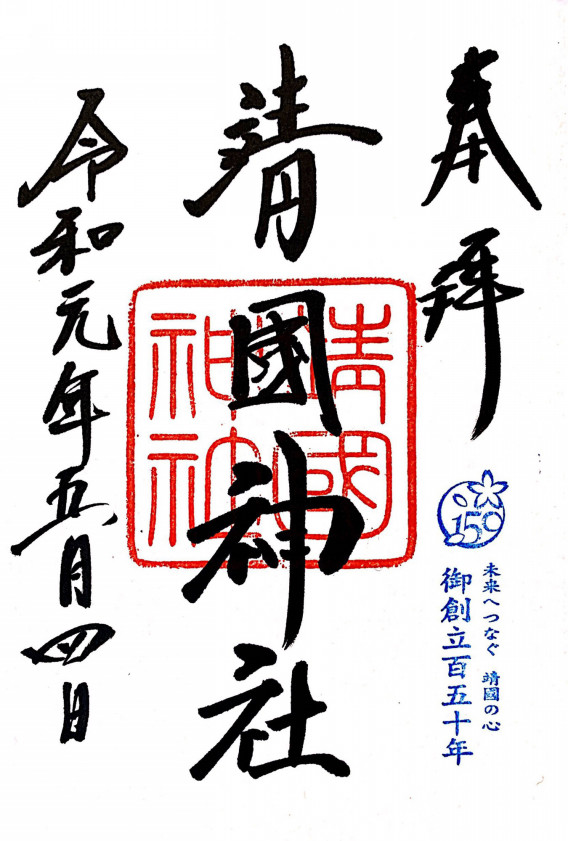 奉拝
靖國神社
靖國
神社
令和元年五月四日
150
未来へつなぐ 靖國の心
御創立百五十年